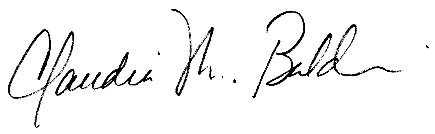 Claudia M. Baldwin